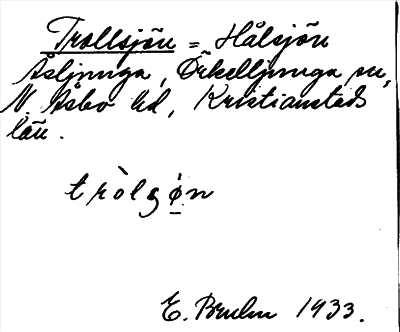 Trollsjön = Hålsjön
Åsljunga, Örkelljunga sn,
N. Åsbo hd, Kristianstads
län.
tròlsø̱n
E. Bruhn 1933.